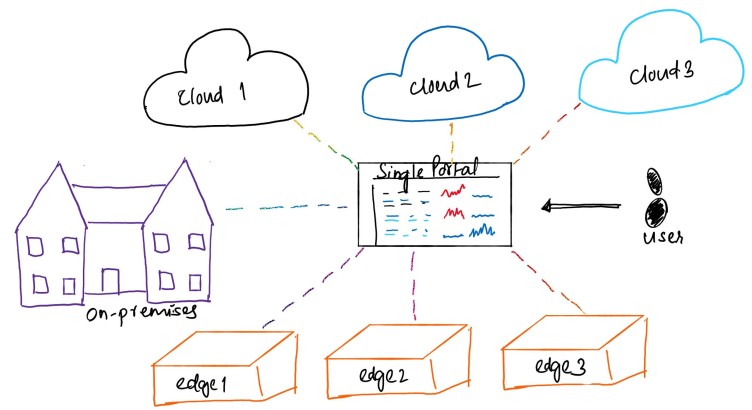 Cloud 1
Cloud2
Cloud3
Single Portal
user
on-premises
edge1
edge2
edge3